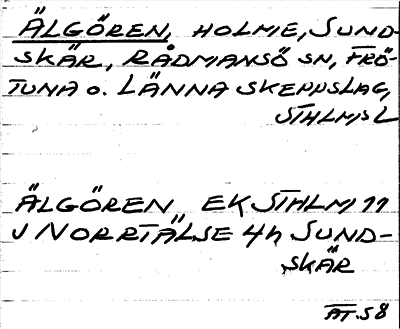 ÄLGÖREN, HOLME, SUND-
SKÄR, RÅDMANSÖ SN, FRÖ-
TUNA O. LÄNNA SKEPPSLAG,
STHLMS L
ÄLGÖREN EK STHLM 11
V NORRTÄLSE 4h SUND-
SKÄR
ÄT. 58